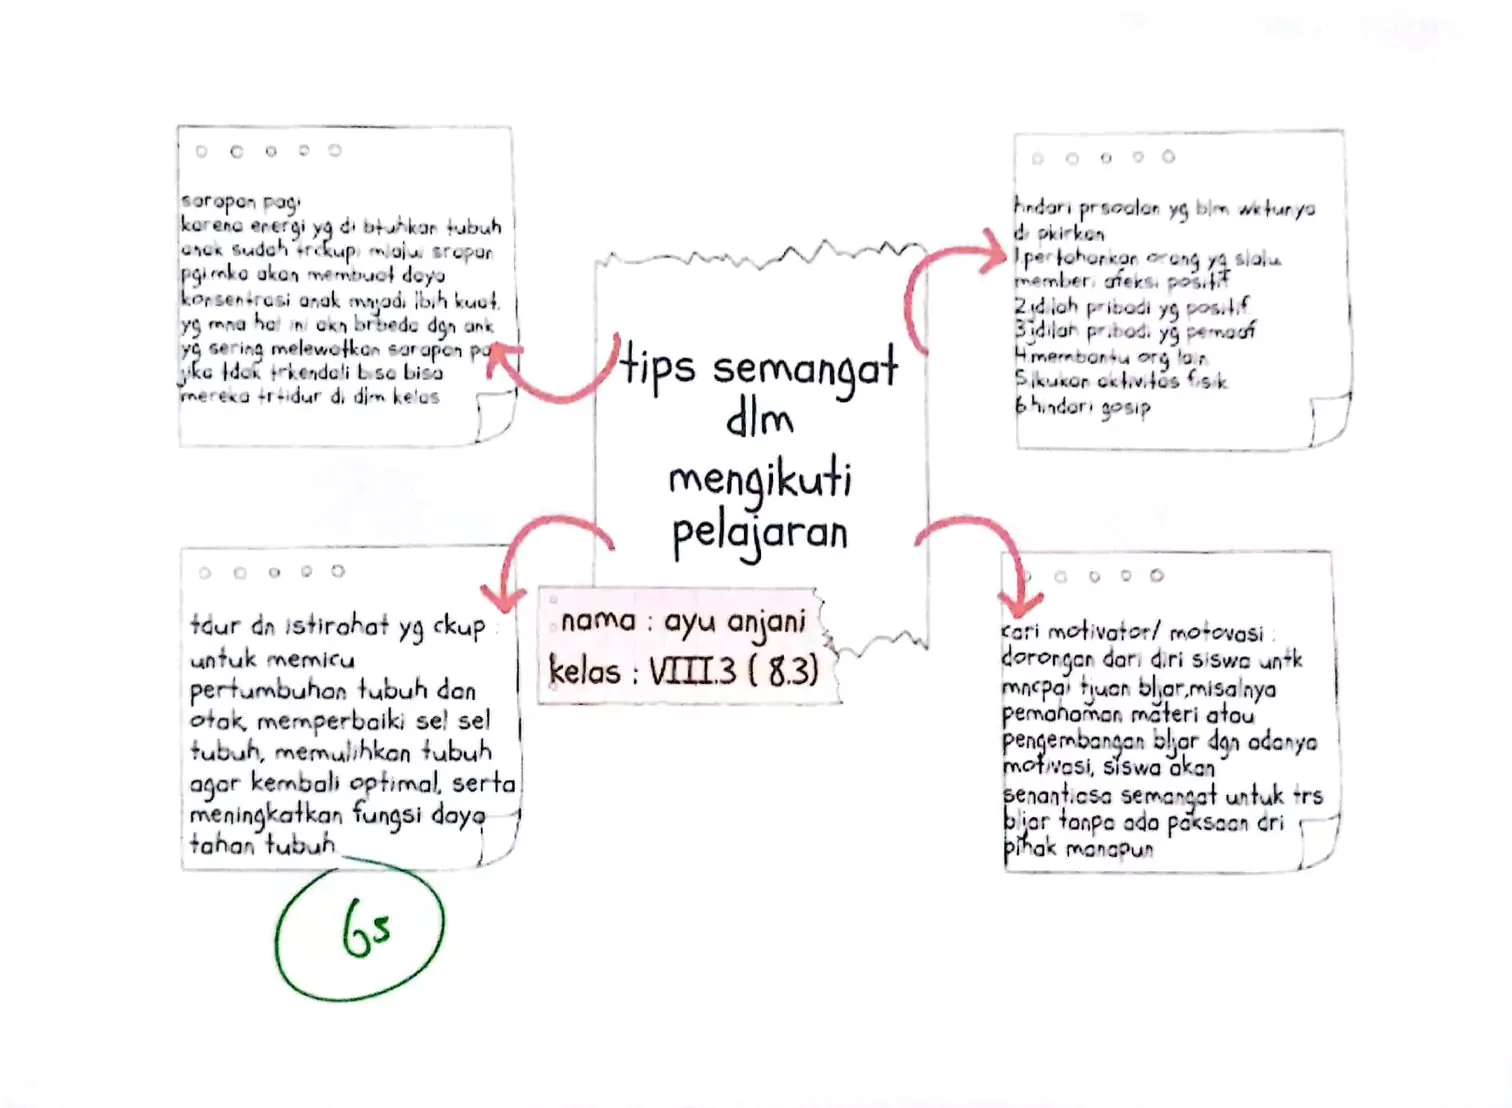 sarapan pagi
karena energi yg di btuhkan tubuh
anak sudah trckupi mlalui srapan
pgi mka akan membuat daya
konsentrasi anak mnjadi lbih kuat.
yg mna hal ini akn brbeda dgn ank
yg sering melewatkan sarapan pa
jika tdak trkendali bisa bisa
mereka trtidur di dlm kelas
hndari prsoalan yg blm wktunya
di pkirkan
1.pertahankan orang yg slalu
memberi afeksi positif
2.jdilah pribadi yg positif
3.jdilah pribadi yg pemaaf
4 membantu org lain
5.lkukan aktivitas fisik
6 hindari gosip
tips semangat
dlm
mengikuti
pelajaran
nama : ayu anjani
kelas : VIII.3 ( 8.3)
tdur dn istirahat yg ckup :
untuk memicu
pertumbuhan tubuh dan
otak, memperbaiki sel sel
tubuh, memulihkan tubuh
agar kembali optimal, serta
meningkatkan fungsi daya
tahan tubuh
cari motivator/ motovasi :
dorongan dari diri siswa untk
mncpai tjuan bljar,misalnya
pemahaman materi atau
pengembangan bljar dgn adanya
motivasi, siswa akan
senantiasa semangat untuk trs
bljar tanpa ada paksaan dri
pihak manapun
65